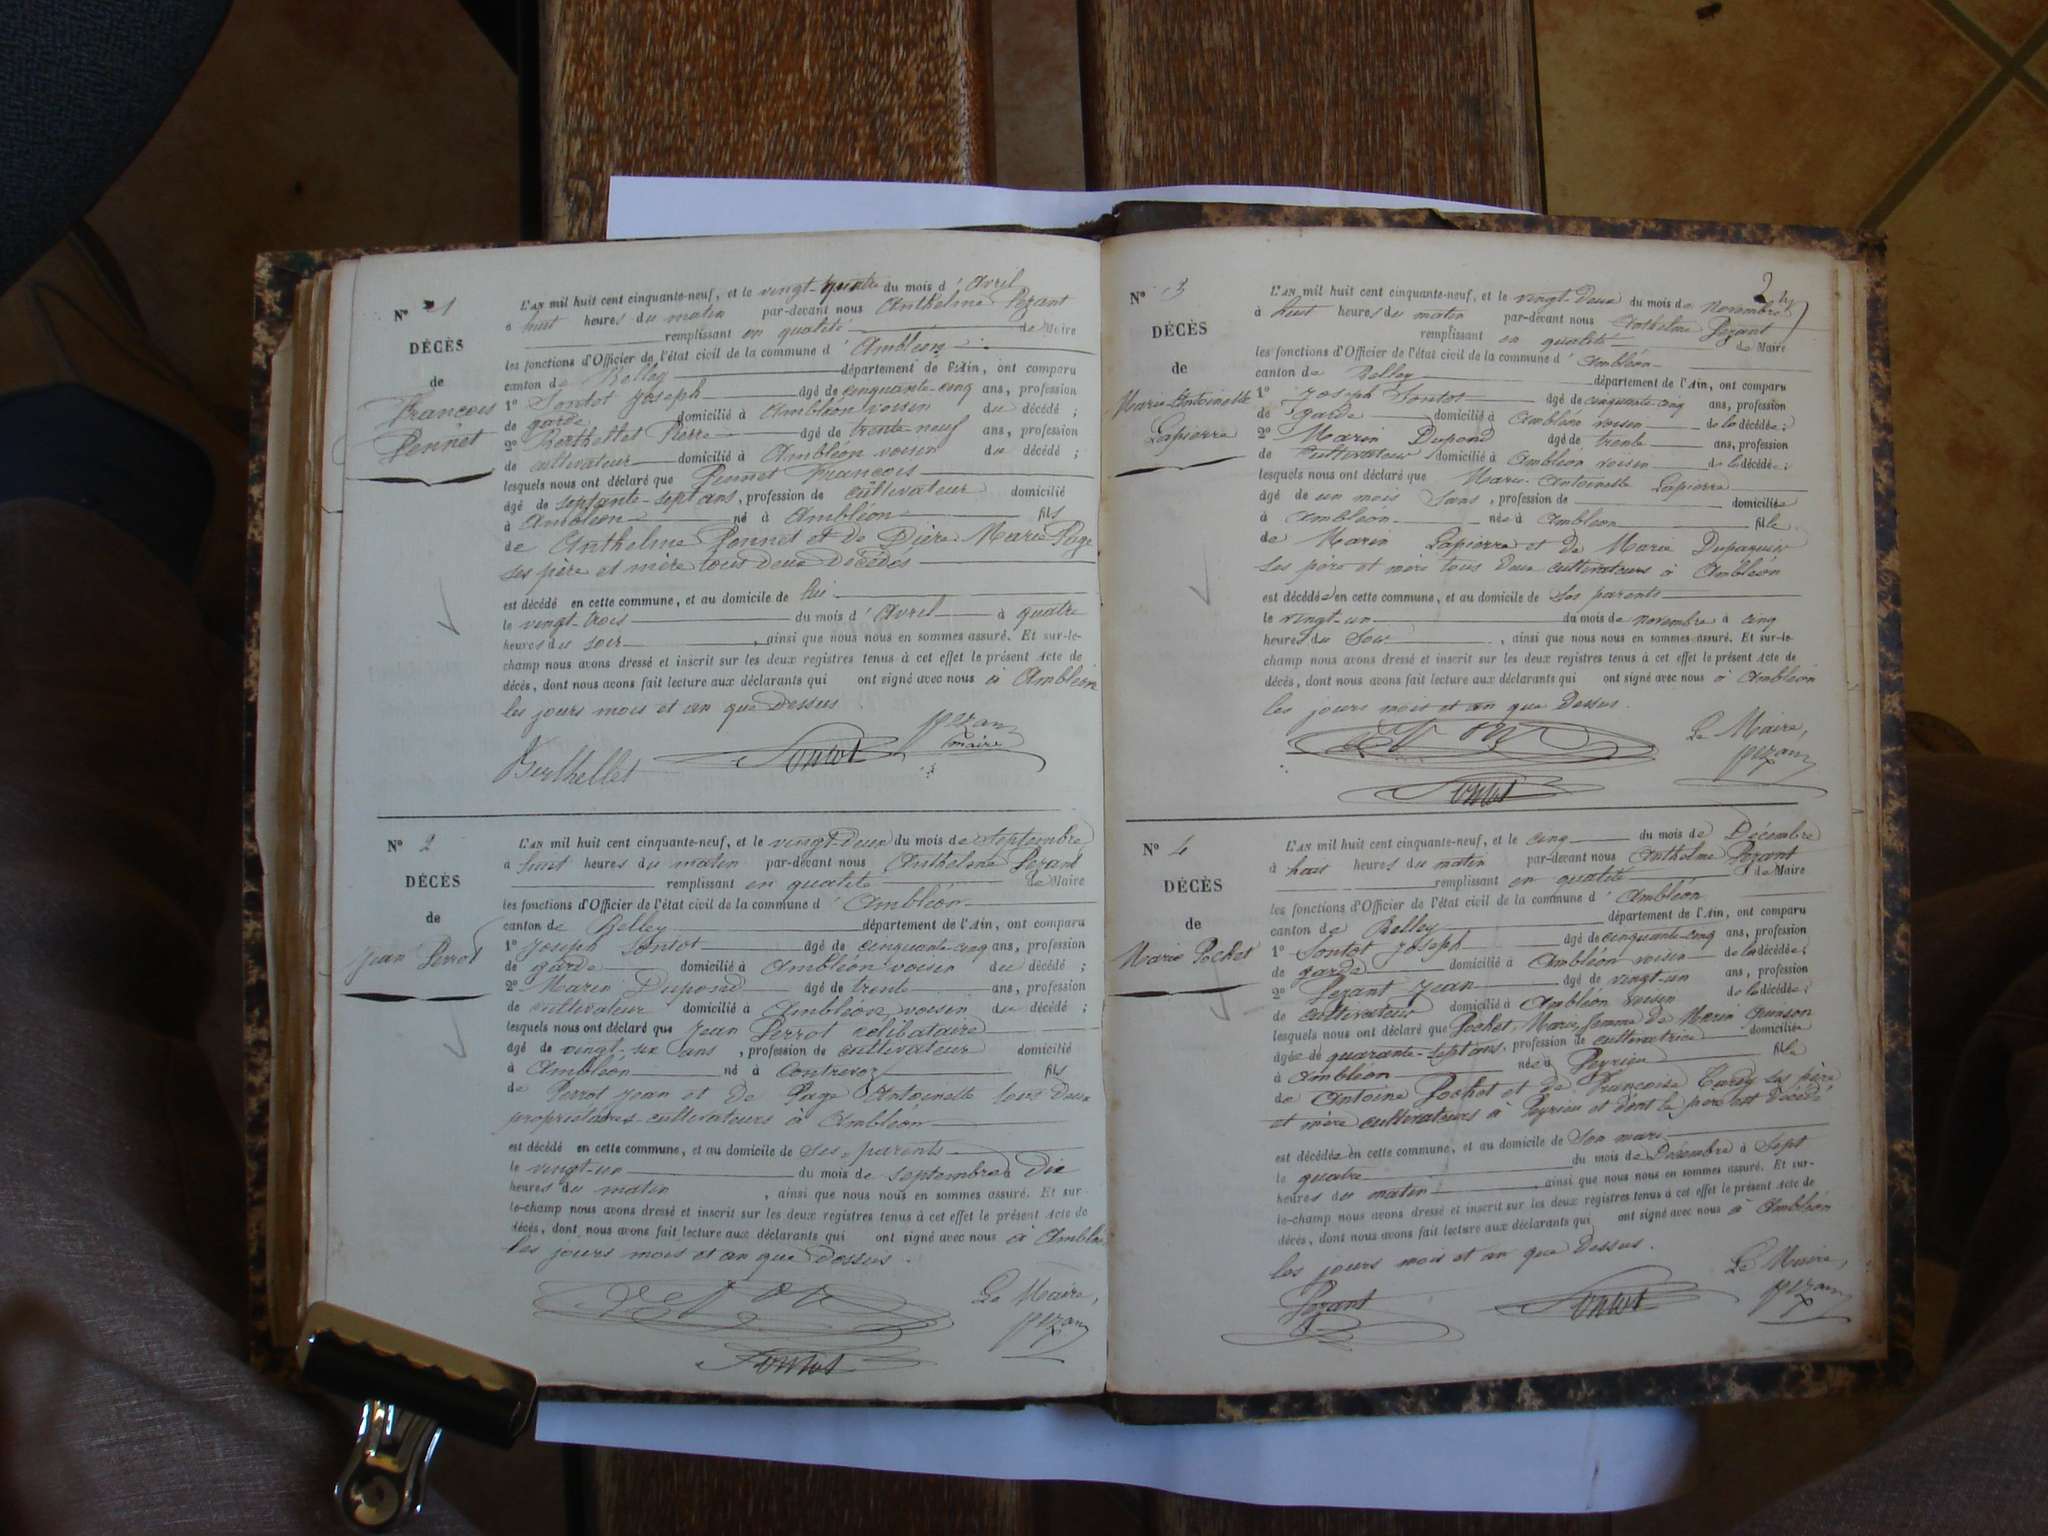 N° 1
DÉCÈS
de
François
Pennet
L'AN mil huit cent cinquante-neuf, et le vingt-quatre du mois d'Avril
à huit heures du matin par-devant nous Anthelme Pezant
remplissant en qualité de Maire
les fonctions d'Officier de l'état civil de la commune d'Ambléon
canton de Belley département de l'Ain, ont comparu
1° Sontot Joseph âgé de cinquante-cinq ans, profession
de garde domicilié à Ambléon voisin du décédé ;
2° Berthellet Pierre âgé de trente-neuf ans, profession
de cultivateur domicilié à Ambléon voisin du décédé ;
lesquels nous ont déclaré que Pennet François
âgé de septante-sept ans, profession de cultivateur domicilié
à Ambléon né à Ambléon fils
de Anthelme Pennet et de Marie Page
ses père et mère tous deux décédés
est décédé en cette commune, et au domicile de lui
le vingt-trois du mois d'Avril à quatre
heures du soir, ainsi que nous nous en sommes assuré. Et sur-le-
champ nous avons dressé et inscrit sur les deux registres tenus à cet effet le présent Acte de
décès, dont nous avons fait lecture aux déclarants qui ont signé avec nous à Ambléon
les jours mois et an que dessus
Berthellet Sontot Pezan
maire
N° 2
DÉCÈS
de
Jean Perrot
L'AN mil huit cent cinquante-neuf, et le vingt-deux du mois de septembre
à huit heures du matin par-devant nous Anthelme Pezant
remplissant en qualité de Maire
les fonctions d'Officier de l'état civil de la commune d'Ambléon
canton de Belley département de l'Ain, ont comparu
1° Joseph Sontot âgé de cinquante-cinq ans, profession
de garde domicilié à Ambléon voisin du décédé ;
2° Marin Dupond âgé de trente ans, profession
de cultivateur domicilié à Ambléon voisin du décédé ;
lesquels nous ont déclaré que Jean Perrot celibataire
âgé de vingt-six ans, profession de cultivateur domicilié
à Ambléon né à Contrevoz fils
de Perrot Jean et de Page Antoinette tous deux
propriétaires cultivateurs à Ambléon
est décédé en cette commune, et au domicile de ses parents
le vingt-un du mois de septembre à dix
heures du matin, ainsi que nous nous en sommes assuré. Et sur
le-champ nous avons dressé et inscrit sur les deux registres tenus à cet effet le présent Acte de
décès, dont nous avons fait lecture aux déclarants qui ont signé avec nous à Ambléo
les jours mois et an que dessus.
Le Maire,
Pezan
Sontot
2
N° 3
DÉCÈS
de
Marie-Antoinette
Lapierre
L'AN mil huit cent cinquante-neuf, et le vingt-deux du mois de Novembre
à huit heures du matin par-devant nous Anthelme Pezant
remplissant en qualité de Maire
les fonctions d'Officier de l'état civil de la commune d'Ambléon
canton de Belley département de l'Ain, ont comparu
1° Joseph Sontot âgé de cinquante-cinq ans, profession
de garde domicilié à Ambléon voisin de la décédée ;
2° Marin Dupond âgé de trente ans, profession
de cultivateur domicilié à Ambléon voisin de la décédée ;
lesquels nous ont déclaré que Marie-Antoinette Lapierre
âgé de un mois sans, profession de domiciliée
à Ambléon née à Ambléon fille
de Marin Lapierre et de Marie Dupasquier
ses père et mère tous deux cultivateurs à Ambléon
est décédée en cette commune, et au domicile de ses parents
le vingt-un du mois de novembre à cinq
heures du soir, ainsi que nous nous en sommes assuré. Et sur-le-
champ nous avons dressé et inscrit sur les deux registres tenus à cet effet le présent Acte de
décès, dont nous avons fait lecture aux déclarants qui ont signé avec nous à Ambléon
les jours mois et an que dessus.
Le Maire,
Pezan
Sontot
N° 4
DÉCÈS
de
Marie Pochet
L'AN mil huit cent cinquante-neuf, et le cinq du mois de Décembre
à huit heures du matin par-devant nous Anthelme Pezant
remplissant en qualité de Maire
les fonctions d'Officier de l'état civil de la commune d'Ambléon
canton de Belley département de l'Ain, ont comparu
1° Sontot Joseph âgé de cinquante-cinq ans, profession
de garde domicilié à Ambléon voisin de la décédée ;
2° Pezant Jean âgé de vingt-un ans, profession
de cultivateur domicilié à Ambléon voisin de la décédée ;
lesquels nous ont déclaré que Pochet Marie femme de Marin
âgée de quarante-sept ans, profession de cultivatrice domiciliée
à Ambléon née à Peyrieu fille
de Antoine Pochet et de Françoise ses père
et mère cultivateurs à Peyrieu et dont le père est décédé
est décédée en cette commune, et au domicile de son mari
le quatre du mois de Décembre à sept
heures du matin, ainsi que nous nous en sommes assuré. Et sur-
le-champ nous avons dressé et inscrit sur les deux registres tenus à cet effet le présent Acte de
décès, dont nous avons fait lecture aux déclarants qui ont signé avec nous à Ambléon
les jours mois et an que dessus.
Le Maire,
Pezant Sontot Pezan